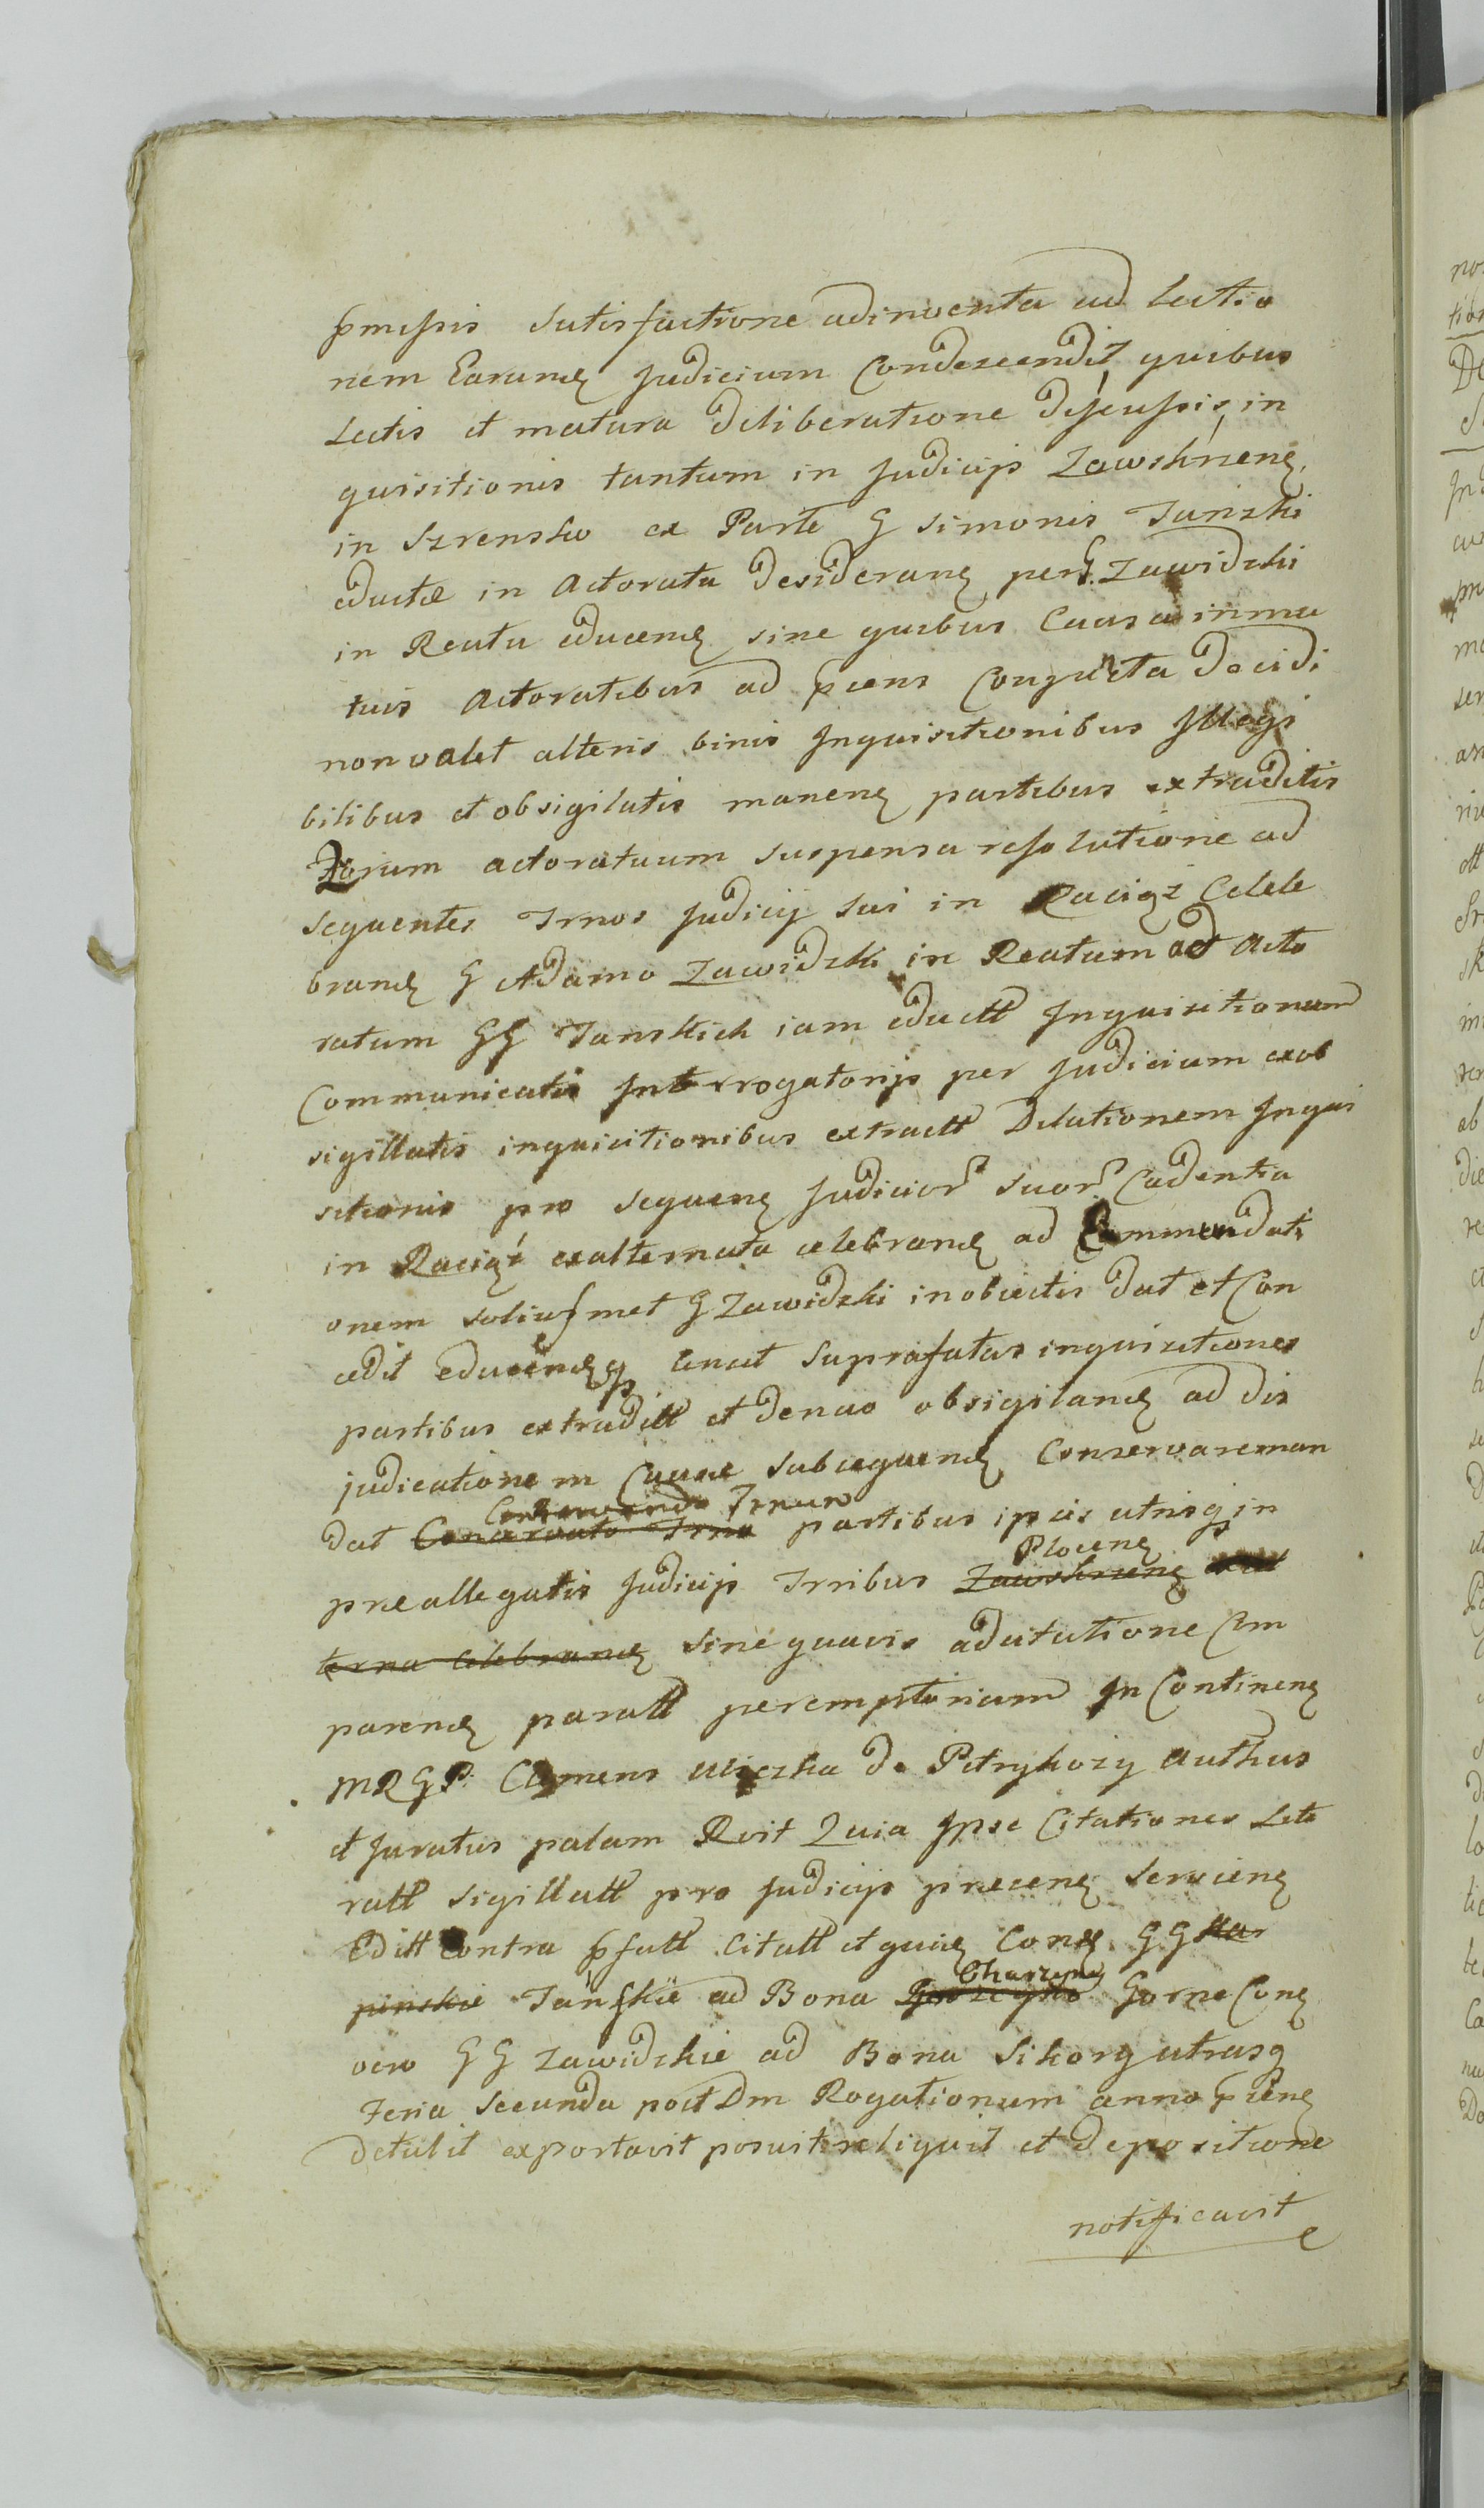 pmissis Satisfactione adinventa ad Lectio
nem Earumq Judicium Condescendit, quibus
Lectis et matura deliberatione discussis, in
quisitionis tantum in Judicijs Zawskrzenę
in Szrensko ex Parte G Simonis Tanski
eductæ in Actoratu desideranę per G. Zawidzki
in Reatu educenę sine quibus Causa in mu
tuis Actoratibus ad pręns Conjucta Decidi
non valet alteris binis Inquisitionibus Illegi
bilibus et obsigilatis manenę partibus extraditis
actoratuum suspensa resolutione ad
sequentes Trnos Judicij sui in Raciąż Celeb
branę G Adamo Zawidzki in Reatum ad Acto
ratum GG Tanskich iam eductt Inquisitionum
Communicatis Interrogatorijs per Judicium exob
sigillatis inquisitionibus extractt Dilationem Inqui
sitionis pro sequenę Judicior suor Cadentia
in Raciąż exalternata celebranę ad Commendati
onem soliusmet G Zawidzki inobiectis dat et Con
cedit educendę ac Suprafatas inquisitiones
partibus extraditt et denuo obsigilanę ad dis
judicationem Causæ subsequenę Conservare man
Conservando Trnum
dat Conservato Trno partibus ipsis utrisq in
Plocenę
præallegatis Judicijs Trribus Zawskrzenę
terna celebranę sine quavis adcitatione Com
parenę paratt peremptorium In Continenę
MRGP: Clemens de Petrykozy Authus
et Juratus palam Rvit Quia Ipse Citationes Lite
ratt sigillatt pro Judicijs præsenę Servienę
Editt Contra pfatt citatt et quidę Conę. GG Kar
Charzyny
pinskie Tanskie ad Bona Gorne Conę
vero GG Zawidzkie ad Bona Sikory utrasq
Feria Secunda post Dm Rogationum anno pręnę
detulit exportavit posuit reliquit et depositione
notificavit